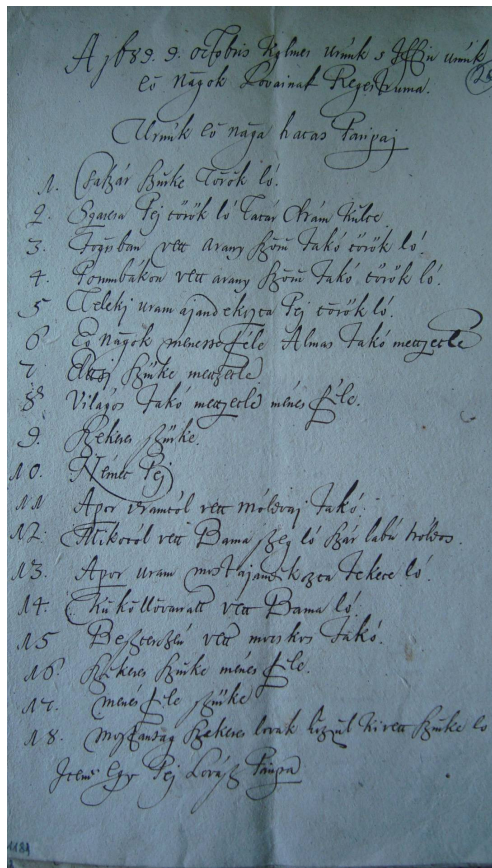 A 1689. 9. octobris Kglmes Urunk s Iffiu urunk
eö Nagok Lovainak Regestruma.
Urunk eö naga hatas Paripaj
1. Császár szürke Török ló.
2. Pej török ló Tatár
3. vett arany szőrü fakó török ló.
4. vett arany szőrü fakó török ló.
5 Teleki uram ajandekozta Pej török ló.
6 Eö Nagok menesse féle Almas fakó metzetle
7. szürke metzetle
8. Világos fakó metzetle ménes féle.
9. Szekeres szürke.
10. Német Pej
11 Apor uramtól vett móldvaj fakó.
12. Mikotól vett Barna szeg ló szár labú hóldos.
13. Apor uram most ajandekozta fekete ló.
14. Küköllövaratt vett Barna ló.
15 vett fakó.
16. Szekeres szürke ménes féle.
17. ménes féle szürke
18. Szekeres lovak közzül kivett szürke lo
Item Egy Pej Lovász Paripa
1184